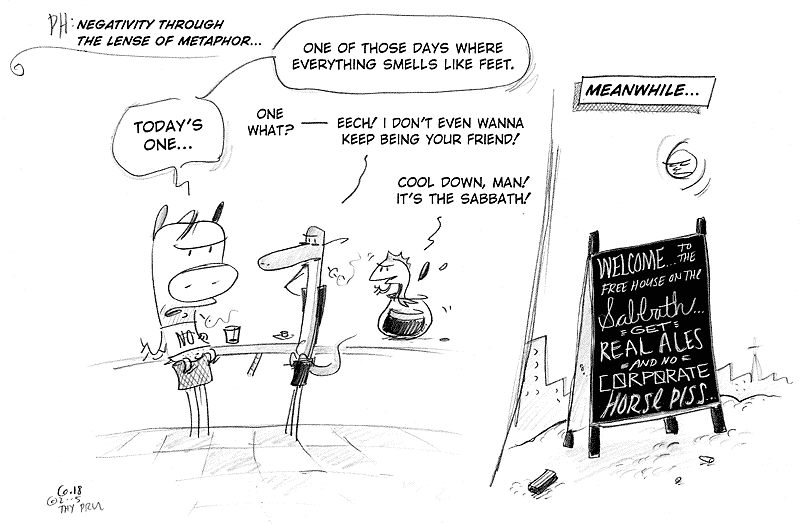 PH: NEGATIVITY THROUGH
THE LENSE OF METAPHOR...
ONE OF THOSE DAYS WHERE
EVERYTHING SMELLS LIKE FEET.
TODAY'S
ONE...
ONE
WHAT?
EECH! I DON'T EVEN WANNA
KEEP BEING YOUR FRIEND!
COOL DOWN, MAN!
IT'S THE SABBATH!
NO
MEANWHILE...
WELCOME... TO
THE
FREE HOUSE ON THE
Sabbath...
GET
REAL ALES
AND NO
CORPORATE
HORSE PISS...
Co.18